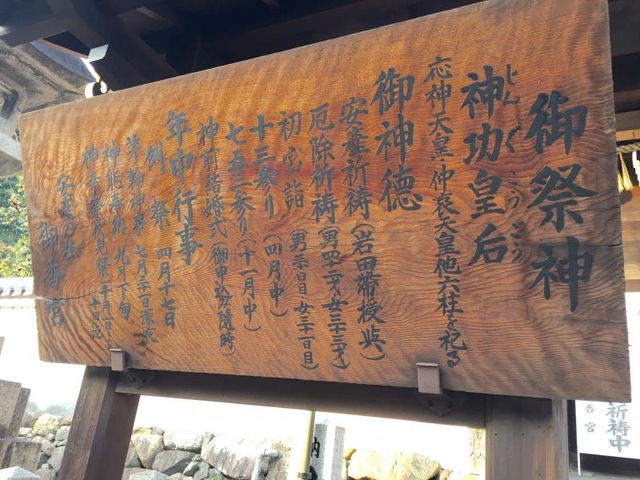 御祭神
じんぐうこうごう
神功皇后
応神天皇・仲哀天皇他六柱を祀る
御神德
安産祈祷（岩田帯授与）
厄除祈祷（男四十二才・女三十三才）
初宮詣（男三十日目・女三十一日目）
十三参り（四月中）
七五三参り（十一月中）
神前結婚式（御申込随時）
年中行事
例祭 四月十七日
茅輪神事 七月三十一日
神能奉納 九月下旬
安産の社
御香宮
祈祷中
香宮
納